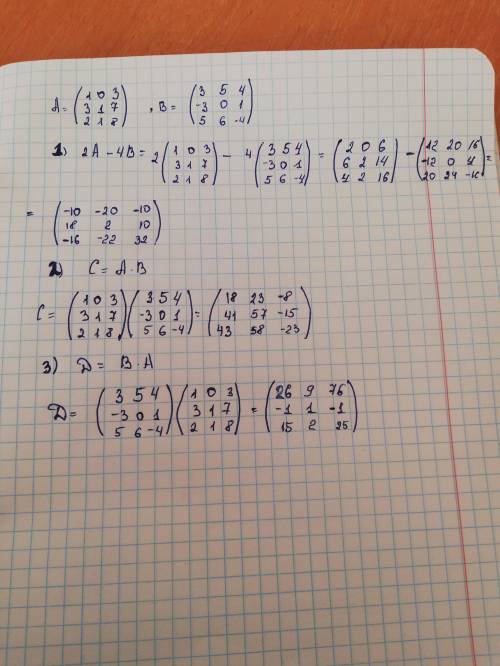 A = ( 1 0 3 ; 3 1 7 ; 2 1 8 ) , B = ( 3 5 4 ; -3 0 1 ; 5 6 -4 )
1) 2A - 4B = 2 ( 1 0 3 ; 3 1 7 ; 2 1 8 ) - 4 ( 3 5 4 ; -3 0 1 ; 5 6 -4 ) = ( 2 0 6 ; 6 2 14 ; 4 2 16 ) - ( 12 20 16 ; -12 0 4 ; 20 24 -16 ) =
= ( -10 -20 -10 ; 18 2 10 ; -16 -22 32 )
2) C = A · B
C = ( 1 0 3 ; 3 1 7 ; 2 1 8 ) ( 3 5 4 ; -3 0 1 ; 5 6 -4 ) = ( 18 23 -8 ; 41 57 -15 ; 43 58 -23 )
3) D = B · A
D = ( 3 5 4 ; -3 0 1 ; 5 6 -4 ) ( 1 0 3 ; 3 1 7 ; 2 1 8 ) = ( 26 9 76 ; -1 1 -1 ; 15 2 25 )